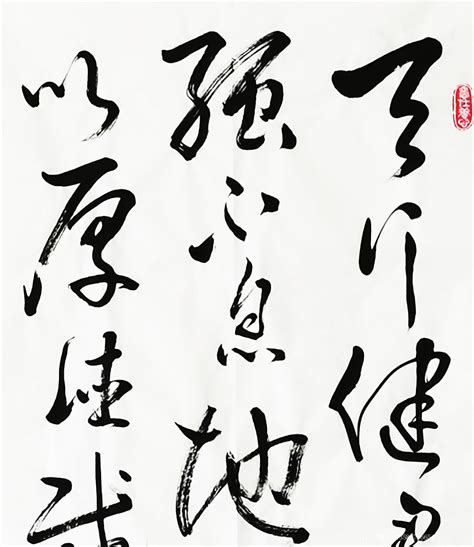 天行健君
强不息地
以厚德载